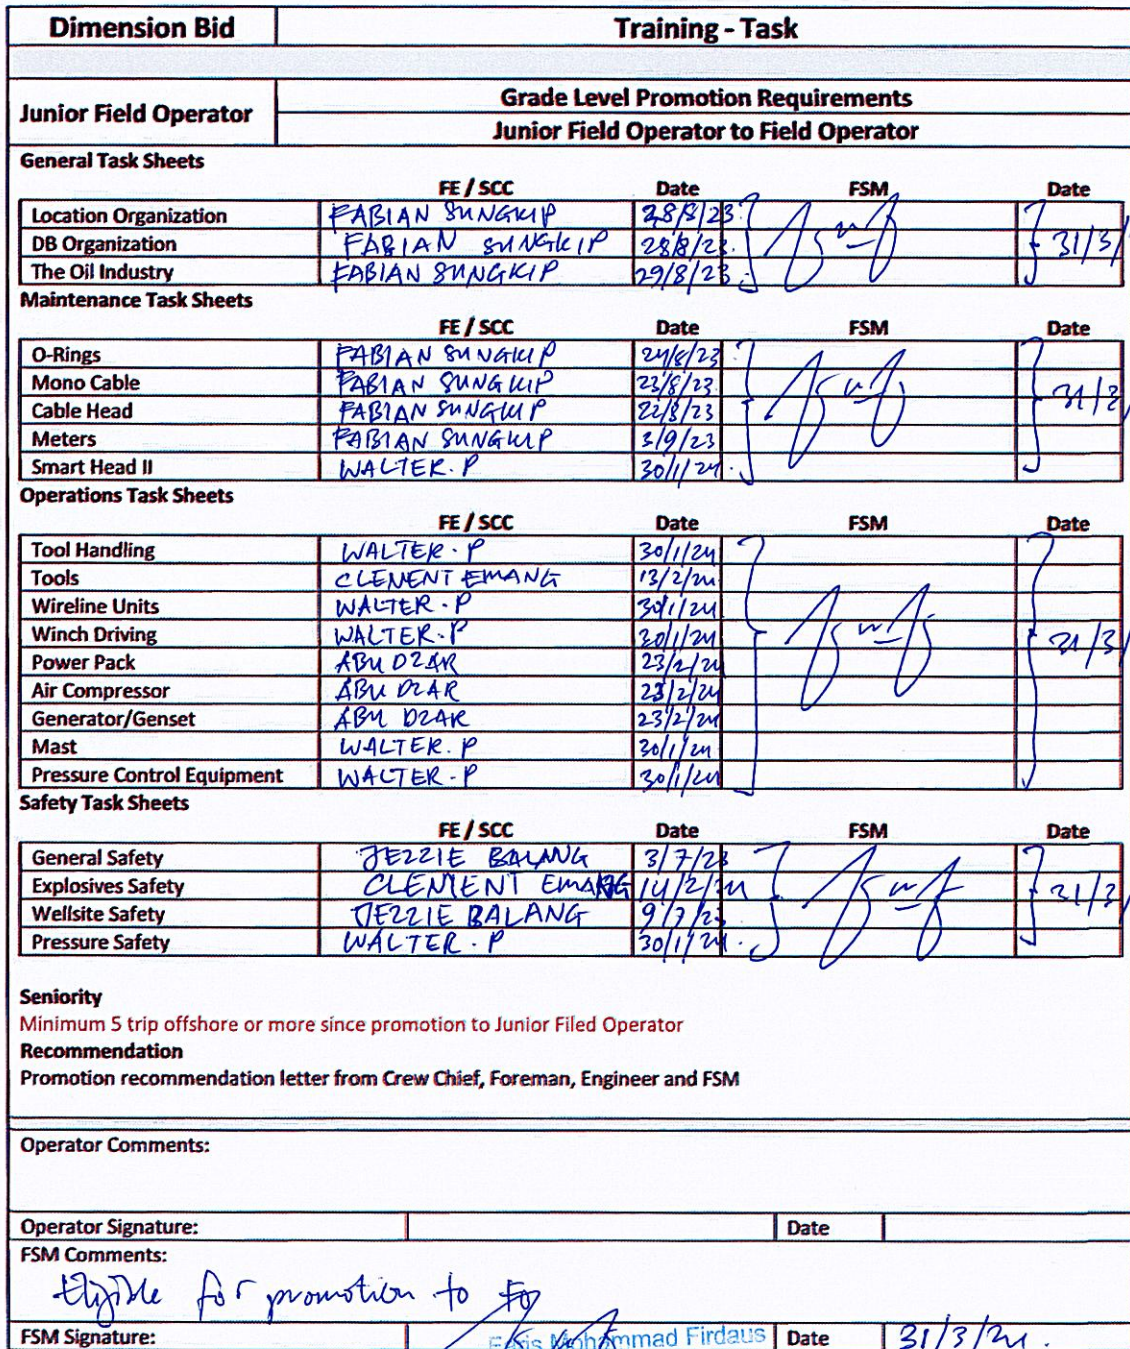 Dimension Bid Training - Task
Junior Field Operator
Grade Level Promotion Requirements
Junior Field Operator to Field Operator
General Task Sheets
FE / SCC Date FSM Date
Location Organization FABIAN SUNGKIP 28/8/23 31/3/
DB Organization FABIAN SUNGKIP 28/8/23.
The Oil Industry FABIAN SUNGKIP 29/8/23
Maintenance Task Sheets
FE / SCC Date FSM Date
O-Rings FABIAN SUNGKIP 24/8/23 31/3/
Mono Cable FABIAN SUNGKIP 23/8/23
Cable Head FABIAN SUNGKIP 22/8/23
Meters FABIAN SUNGKIP 3/9/23
Smart Head II WALTER. P 30/1/24.
Operations Task Sheets
FE / SCC Date FSM Date
Tool Handling WALTER. P 30/1/24 31/3/
Tools CLEMENT EMANG 13/2/24
Wireline Units WALTER. P 30/1/24
Winch Driving WALTER. P 30/1/24
Power Pack ABU DZAR 23/2/24
Air Compressor ABU DZAR 23/2/24
Generator/Genset ABU DZAR 23/2/24
Mast WALTER. P 30/1/24
Pressure Control Equipment WALTER. P 30/1/24
Safety Task Sheets
FE / SCC Date FSM Date
General Safety JEZZIE BALANG 3/7/23 31/3/
Explosives Safety CLEMENT EMANG 14/2/24
Wellsite Safety JEZZIE BALANG 9/7/23
Pressure Safety WALTER. P 30/1/24.
Seniority
Minimum 5 trip offshore or more since promotion to Junior Filed Operator
Recommendation
Promotion recommendation letter from Crew Chief, Foreman, Engineer and FSM
Operator Comments:
Operator Signature: Date
FSM Comments:
Eligible for promotion to FO
FSM Signature: Mohammad Firdaus Date 31/3/24.